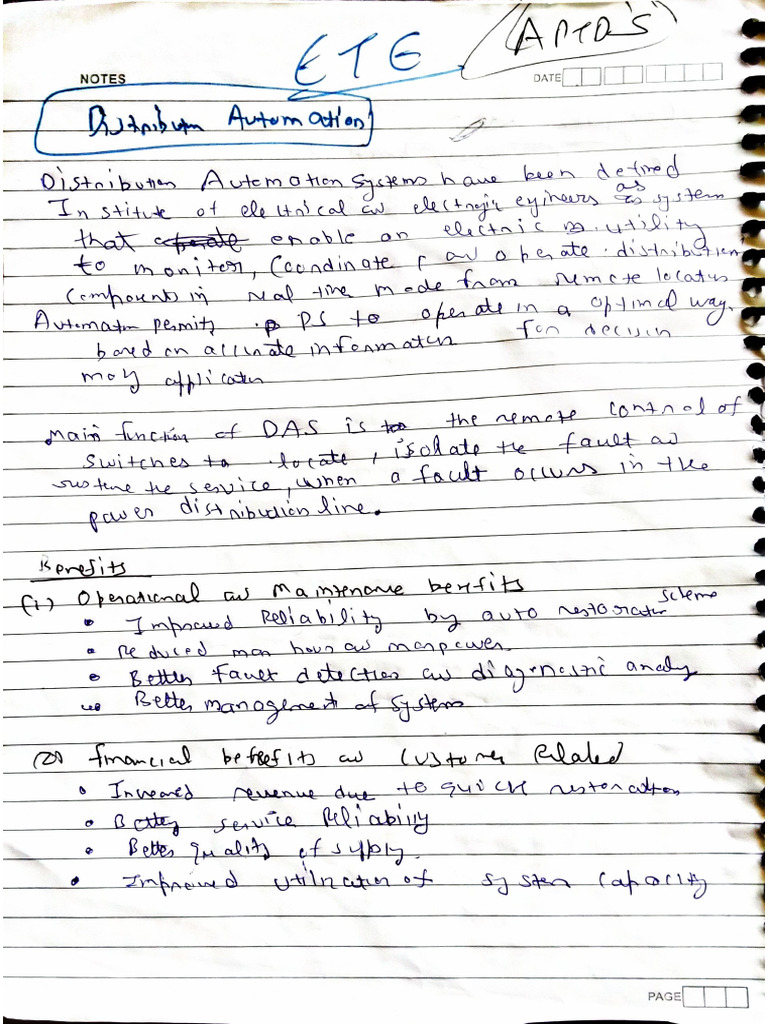 ETE
(APTDS)
NOTES
DATE
Distributn Automation
Distribution Automation Systems have been defined
Institute of electrical aw electronic engineers as system
that enable an electric utility
to monitor, coordinate aw operate distribution
components in real time mode from remote location
Automatn permits PS to operate in a optimal way.
based on accurate informatin for decisin
may applicatn
Main function of DAS is the remote control of
switches to locate, isolate the fault aw
restore the service, when a fault occurs in the
power distribution line.
Benefits
(1) Operational aw Maintenance benefits
• Improved Reliability by auto restoration scheme
• Reduced man hour aw manpower.
• Better Fault detection aw diagnostic analy
• Better management of System
(2) financial benefits aw Customer Related
• Increased revenue due to quick restoration
• Better service Reliability
• Better quality of supply.
• Improved utilization of system capacity
PAGE